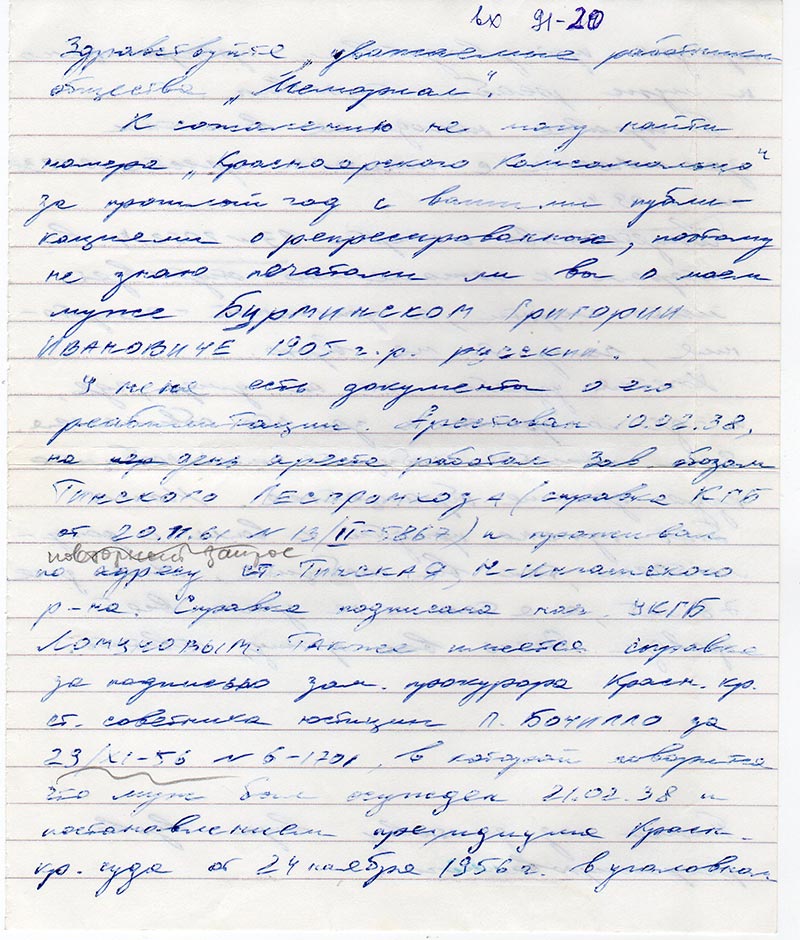 вх 91-20
Здравствуйте, уважаемые работники
общества „Мемориал".
К сожалению не могу найти
номера „Красноярского Комсомольца"
за прошлый год с вашими публи-
кациями о репрессированных, поэтому
не знаю печатали ли вы о моем
муже БУРМИНСКОМ ГРИГОРИИ
ИВАНОВИЧЕ 1905 г.р. русский.
У меня есть документы о его
реабилитации. Арестован 10.02.38,
на день ареста работал Зав. базой
Тинского Леспромхоза (справка КГБ
от 20.11.61 N 13/II-5867) и проживал
повторный запрос
по адресу ст ТИНСКАЯ, Н-Ингашского
р-на. Справка подписана нач. УКГБ
Также имеется справка
за подписью зам. прокурора Красн. кр.
ст. советника юстиции П. Бочилло за
23/XI-56 N 6-1701, в которой говорится
что муж был осужден 21.02.38 и
постановлением президиума Красн.
кр. суда от 24 ноября 1956 г. в уголовном